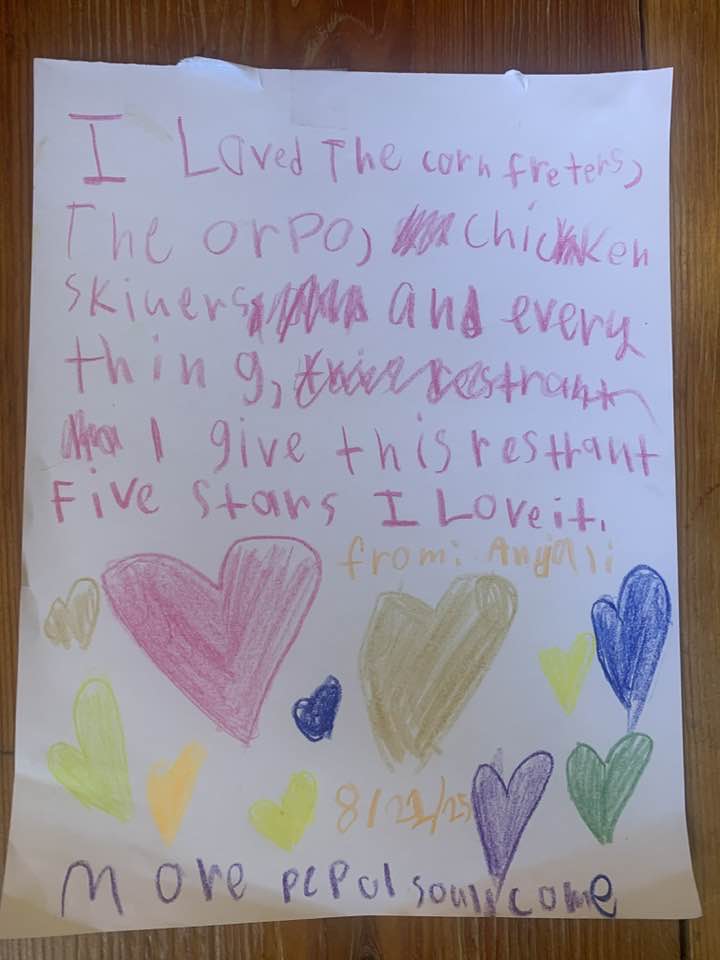 I Loved The corn freters,
The orpo, chicken
skiuers and every
thing, restrant
I give this restrant
Five stars I Love it.
from: Anjali
8/21/25
more pepol souly come